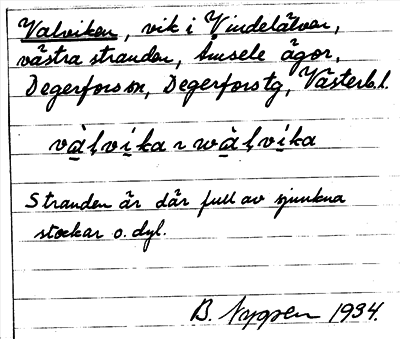 Valviken, vik i Vindelälven,
västra stranden, Åmsele ägor,
Degerfors sn, Degerfors tg, Västerb.l.
và̱lvi̱ka ~ wà̱lví̱ka
Stranden är där full av sjunkna
stockar o. dyl.
B. Nygren 1934.